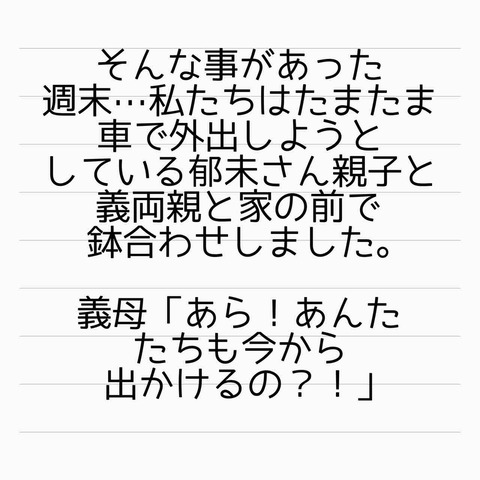 そんな事があった
週末…私たちはたまたま
車で外出しようと
している郁未さん親子と
義両親と家の前で
鉢合わせしました。
義母「あら！あんた
たちも今から
出かけるの？！」